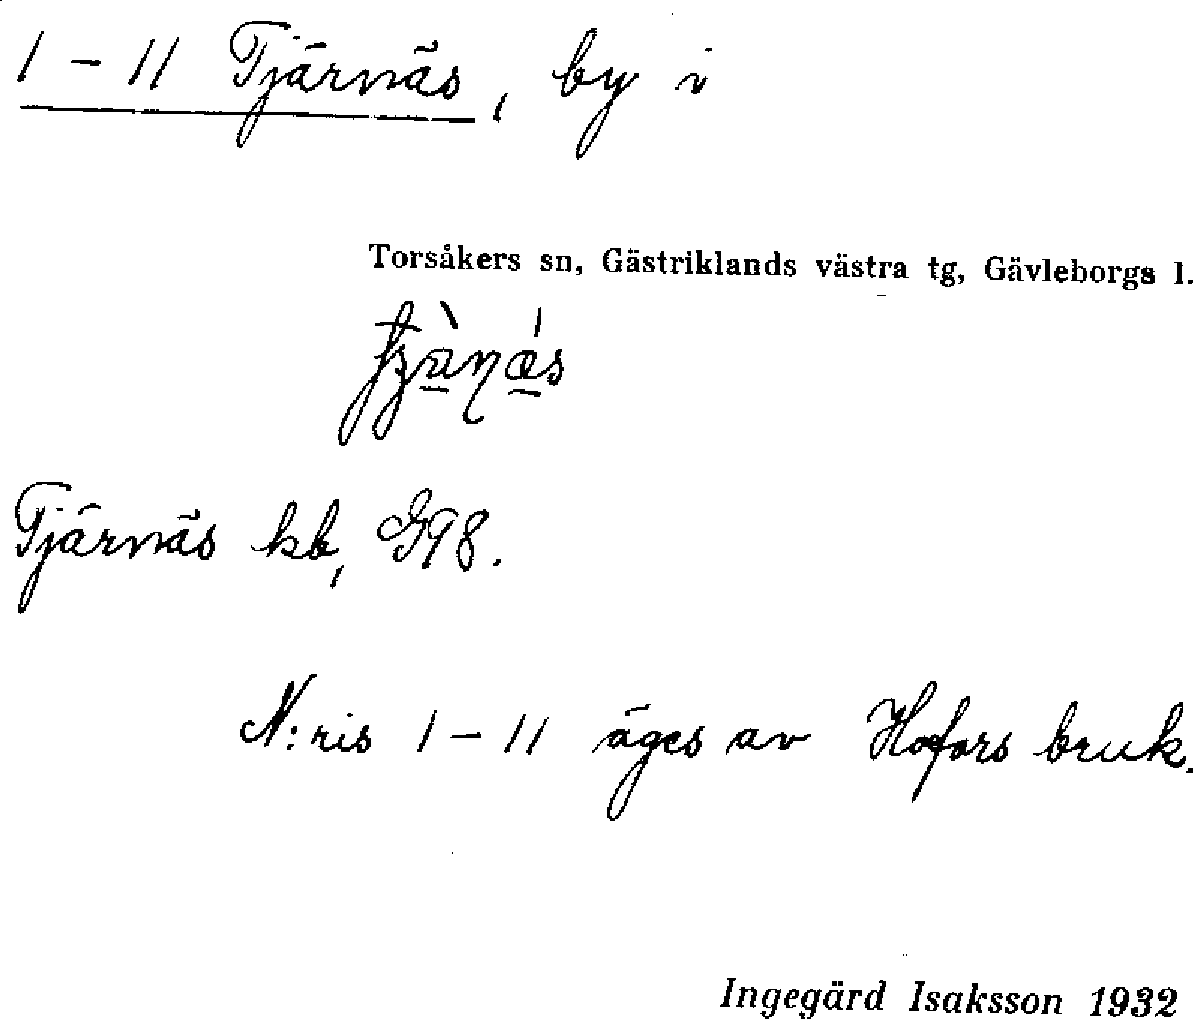 1 – 11 Tjärnäs, by i
Torsåkers sn, Gästriklands västra tg, Gävleborgs l.
Tjärnäs kb, G98.
N:ris 1 – 11 äges av Hofors bruk.
Ingegärd Isaksson 1932